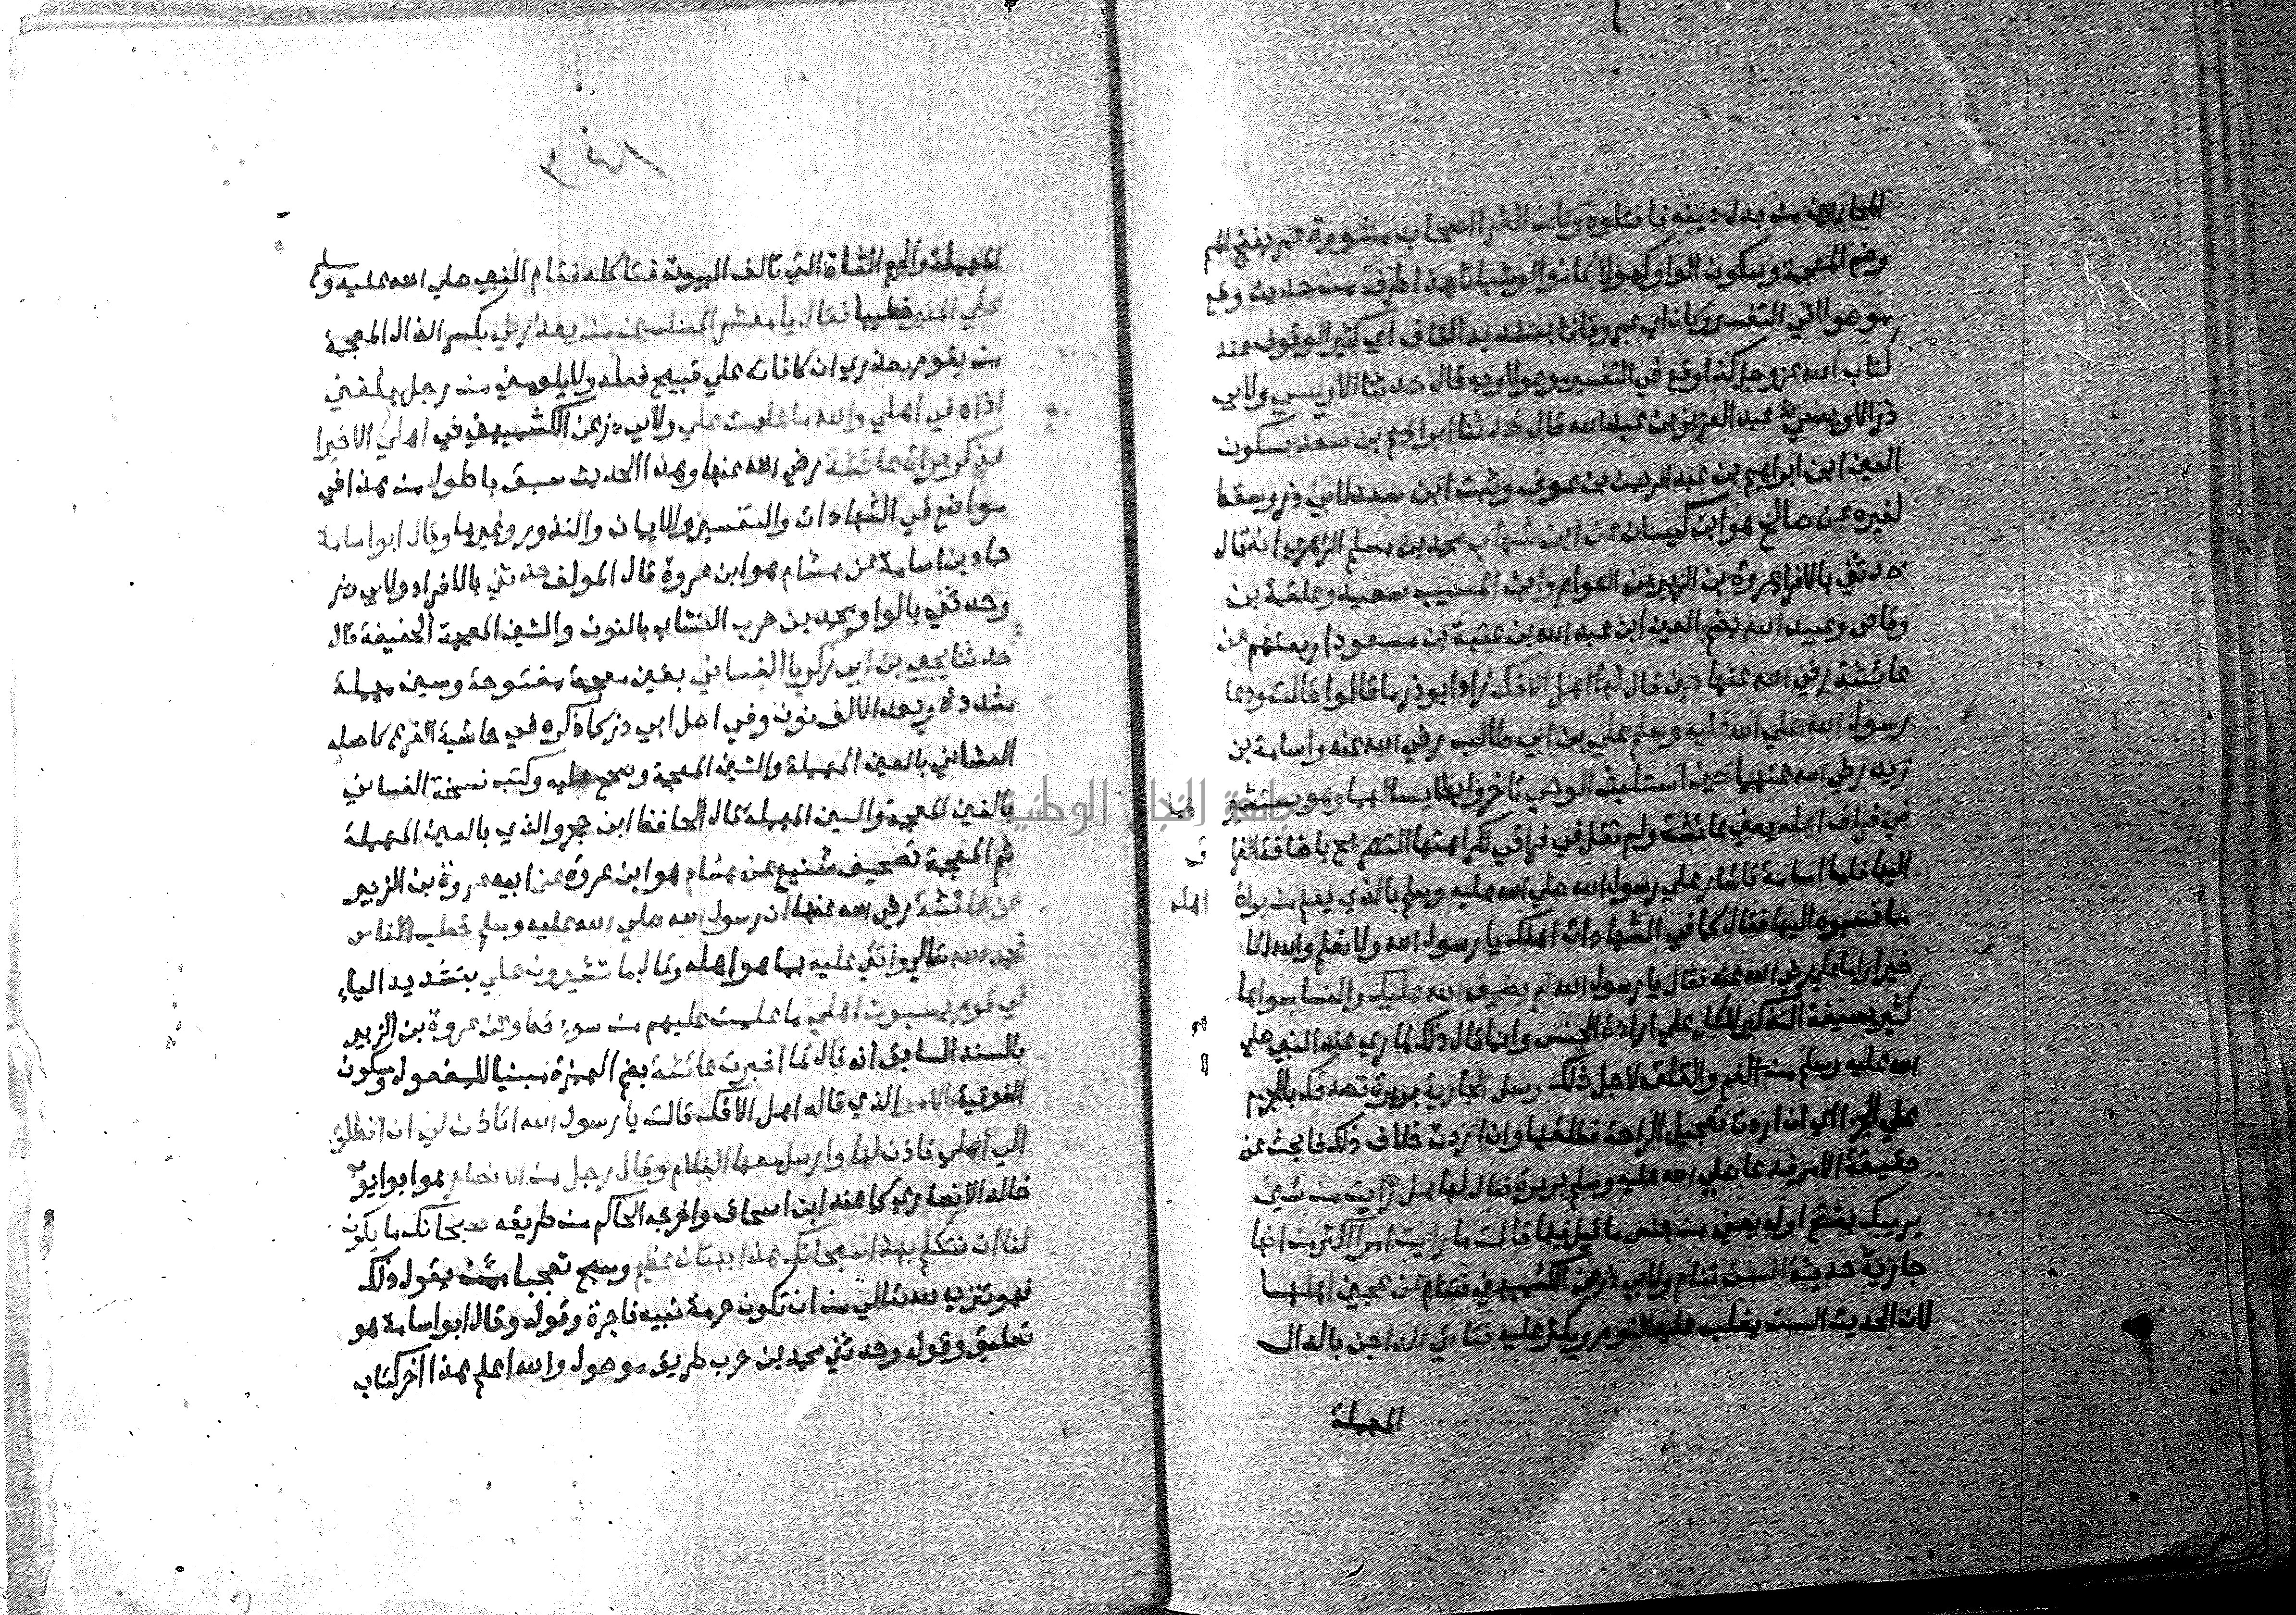 المحاربين من بدل دينه فاقتلوه وكان القرا اصحاب مشورة عمر بفتح الميم
وضم المعجمة وسكون الواو كهولا كانوا او شبانا هذا طرف من حديث وقع
موصولا في التفسير وكان اي عمر وقافا بتشديد القاف اي كثير الوقوف عند
كتاب الله عز وجل كذا وقع في التفسير موصولا وبه قال حدثنا الاويسي ولابي
ذر الاويسي عبد العزيز بن عبد الله قال حدثنا ابراهيم بن سعد بسكون
العين ابن ابراهيم بن عبد الرحمن بن عوف وثبت ابن سعد لابي ذر وسقط
لغيره عن صالح هو ابن كيسان عن ابن شهاب محمد بن مسلم الزهري انه قال
حدثني بالافراد عروة بن الزبير بن العوام وابن المسيب سعيد وعلقمة بن
وقاص وعبيد الله بضم العين ابن عبد الله بن عتبة بن مسعود اربعتهم عن
عائشة رضي الله عنها حين قال لها اهل الافك زاد ابوذر ما قالوا قالت ودعا
رسول الله صلي الله عليه وسلم علي بن ابي طالب رضي الله عنه واسامة بن
زيد رضي الله عنهما حين استلبث الوحي تاخر وابطا يسالهما وهو يستشير
في فراق اهله يعني عائشة ولم تقل في فراقي لكراهتها التصريح باضافة الفرا
ق
اليها فاما اسامة فاشار علي رسول الله صلي الله عليه وسلم بالذي يعلم من براة
اهله
مما نسبوه اليها فقال كما في الشهادات اهلك يا رسول الله ولا نعلم والله الا
خيرا واما علي رضي الله عنه فقال يا رسول الله لم يضيق الله عليك والنسا سواها
كثير بصيغة التذكير للكل علي ارادة الجنس وانما قال ذلك لما راي عند النبي صلي
الله عليه وسلم من الغم والقلق لاجل ذلك وسل الجارية بريرة تصدقك بالجزم
علي الجزا اي ان اردت تعجيل الراحة فطلقها وان اردت خلاف ذلك فابحث عن
حقيقة الامر فدعا صلي الله عليه وسلم بريرة فقال لها هل رايت من شيء
يريبك بفتح اوله يعني من جنس ما قيل فيها قالت ما رايت امرا اكثر من انها
جارية حديثة السن تنام ولابي ذر عن الكشميهني فتنام عن عجين اهلها
لان الحديث السن يغلب عليه النوم ويكثر عليه فتاتي الداجن بالدال
المهملة
المهملة والجيم الشاة التي تالف البيوت فتاكله فقام النبي صلي الله عليه وسلم
علي المنبر خطيبا فقال يا معشر المسلمين من يعذرني بكسر الذال المعجمة
من يقوم بعذري ان كافاته علي قبيح فعله ولا يلومني من رجل بلغني
اذاه في اهلي والله ما علمت علي ولابي ذر عن الكشميهني في اهلي الا خيرا
فذكر براة عائشة رضي الله عنها وهذا الحديث سبق باطول من هذا في
مواضع في الشهادات والتفسير والايمان والنذور وغيرها وقال ابو اسامة
حماد بن اسامة عن هشام هو ابن عروة قال المولف حدثني بالافراد ولابي ذر
وحدثني بالواو محمد بن حرب النشاب بالنون والشين المعجمة الخفيفة قال
حدثنا يحيي بن ابي زكريا الغساني بغين معجمة مفتوحة وسين مهملة
مشددة وبعد الالف نون وفي اصل ابي ذر كما ذكره في حاشية الفرع كاصله
العشاني بالعين المهملة والشين المعجمة وصحح عليه وكتب نسخة الغساني
بالغين المعجمة والسين المهملة قال الحافظ ابن حجر والذي بالعين المهملة
ثم المعجمة تصحيف شنيع عن هشام هو ابن عروة عن ابيه عروة بن الزبير
عن عائشة رضي الله عنها ان رسول الله صلي الله عليه وسلم خطب الناس
فحمد الله تعالي واثني عليه بما هو اهله وقال ما تشيرون علي بتشديد الياء
في قوم يسبون اهلي ما علمت عليهم من سوء قط وعن عروة بن الزبير
بالسند السابق انه قال لما اخبرت عائشة بضم الهمزة مبنيا للمفعول وسكون
الفوقية بالامر الذي قاله اهل الافك قالت يا رسول الله اتاذن لي ان انطلق
الي اهلي فاذن لها وارسل معها الغلام وقال رجل من الانصار هو ابو ايوب
خالد الانصاري كما عند ابن اسحاق واخرجه الحاكم من طريقه سبحانك ما يكون
لنا ان نتكلم بهذا سبحانك هذا بهتان عظيم وسبح تعجبا ممن يقول ذلك
فهو تنزيه لله تعالي من ان تكون حرمة نبيه فاجرة وقوله وقال ابو اسامة هو
تعليق وقوله وحدثني محمد بن حرب طريق موصول والله اعلم هذا اخر كتاب
جامعة النجاح الوطنية